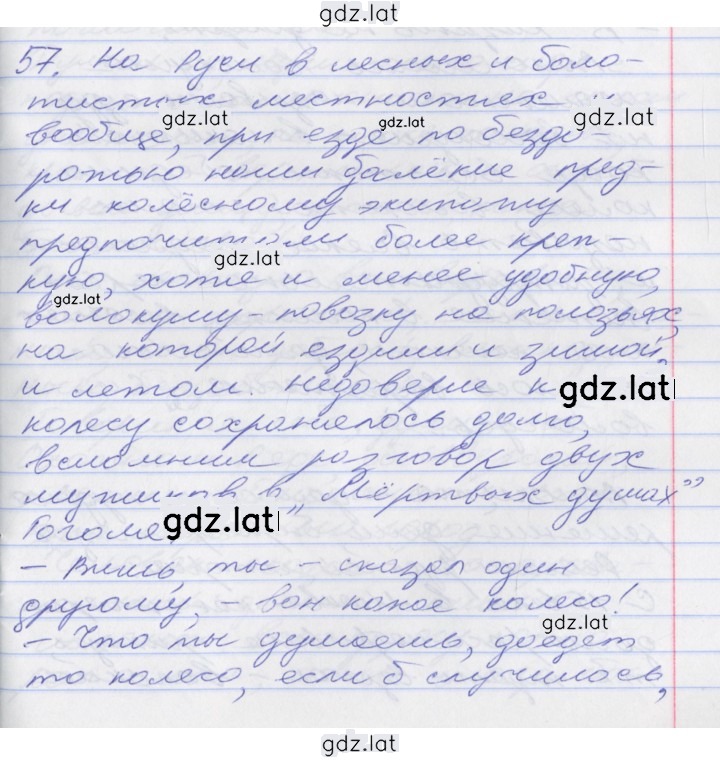 gdz.lat
57. На Руси в лесных и боло-
тистых местностях
gdz.lat gdz.lat
вообще, при езде по бездо-
рожью наши далёкие пред-
ки колёсному экипажу
предпочитали более креп-
gdz.lat
кую, хотя и менее удобную,
gdz.lat
волокушу - повозку на полозьях,
на которой ездили и зимой
и летом. Недоверие к
gdz.lat
колесу сохранялось долго,
вспомним разговор двух
мужиков в "Мёртвых душах"
gdz.lat
Гоголя
- Вишь ты - сказал один
другому, - вон какое колесо!
gdz.lat
- Что ты думаешь, доедет
то колесо, если б случилось,
gdz.lat